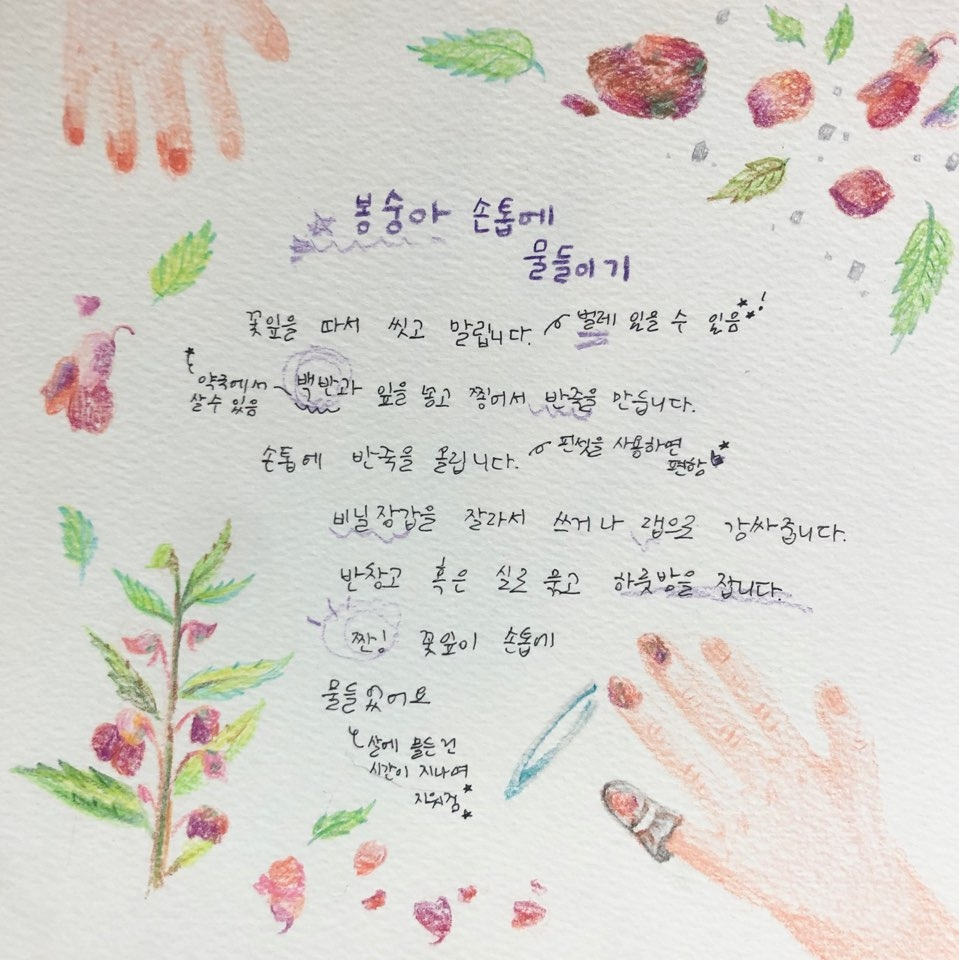 봉숭아 손톱에
물들이기
꽃잎을 따서 씻고 말립니다. 벌레 있을 수 있음!
약국에서
살 수 있음
백반과 잎을 넣고 찧어서 반죽을 만듭니다.
손톱에 반죽을 올립니다. 핀셋을 사용하면
편함
비닐장갑을 잘라서 쓰거나 랩으로 감싸줍니다.
반창고 혹은 실로 묶고 하룻밤을 잡니다.
짠! 꽃잎이 손톱에
물들었어요
살에 물든 건
시간이 지나며
지워짐